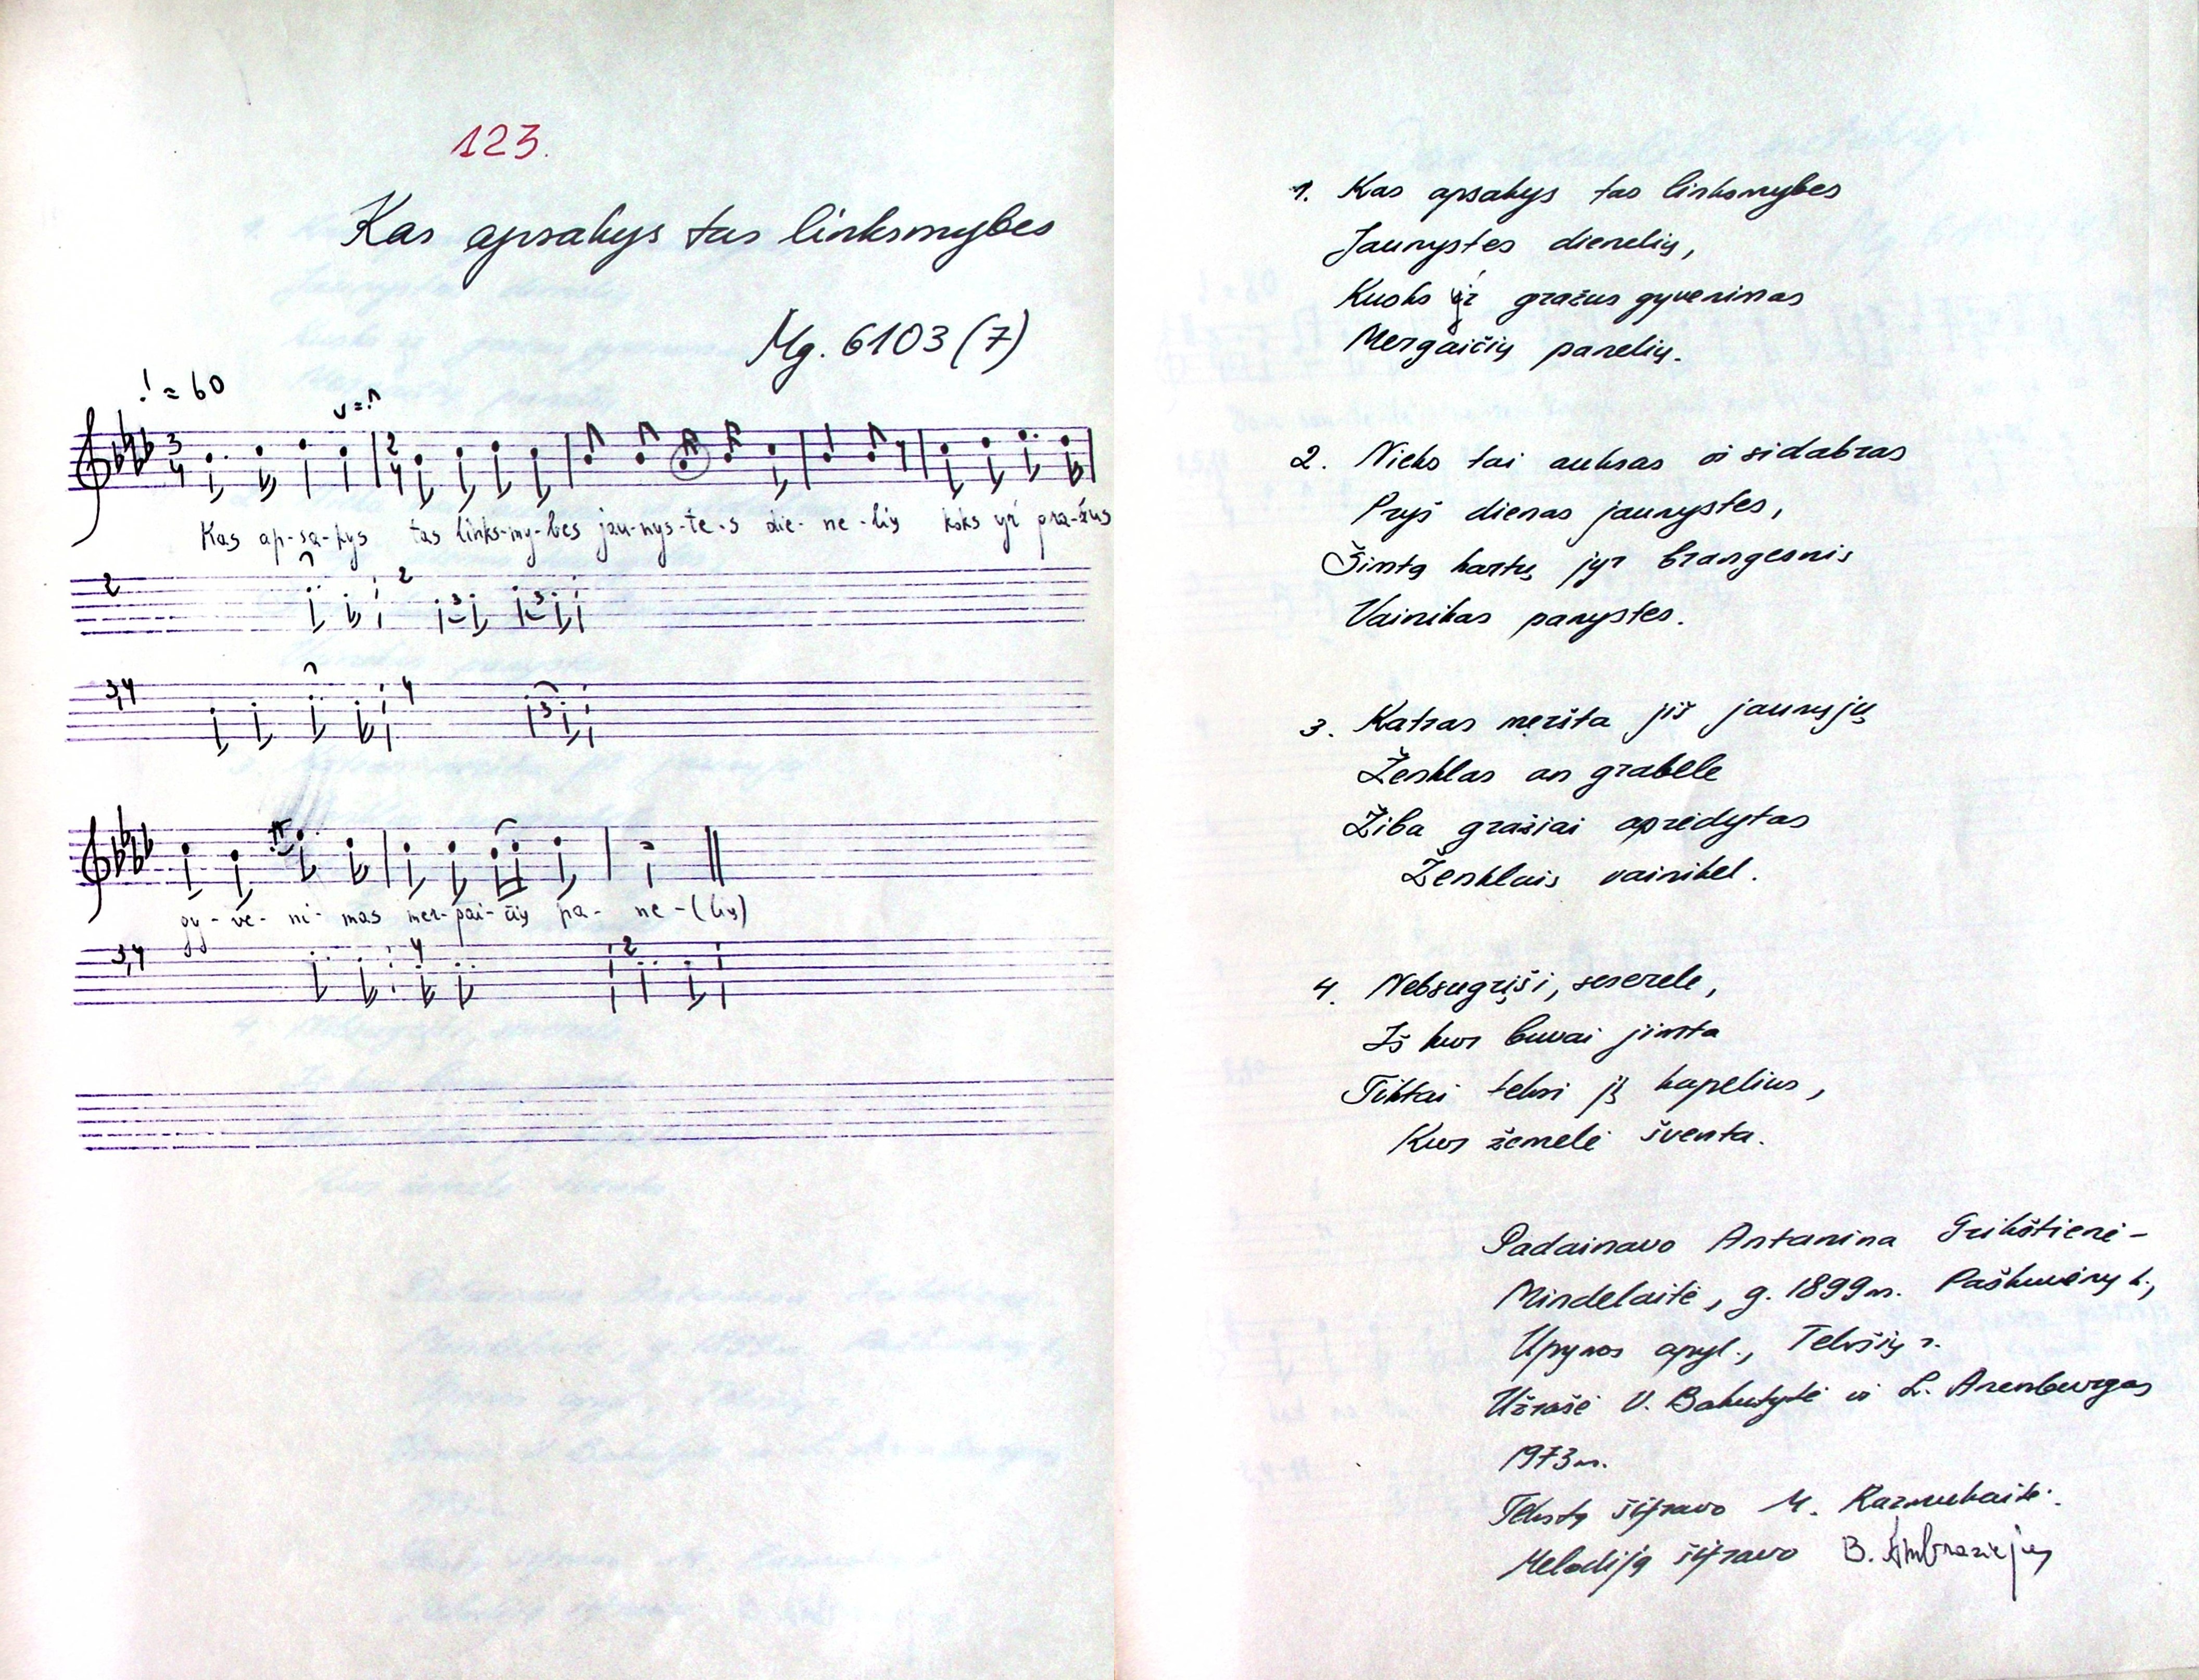 123.
Kas apsakys tas linksmybes
Mg. 6103 (7)
♩ = 60
3 4
2 4
Kas ap-sa-kys tas links-my-bes jau-nys-te-s die-ne-lių koks yr gra-žus
2
2
3,4
4
gy-ve-ni-mas mer-gai-čių pa-ne-(lių)
3,4
4
2
1. Kas apsakys tas linksmybes
Jaunystes dienelių,
Kuoks yr gražus gyvenimas
Mergaičių panelių.
2. Nieks tai auksas ir sidabras
Pryš dienas jaunystes,
Šimtą kartų jyr brangesnis
Vainikas panystes.
3. Katras meršta jiš jaunųjų
Ženklas an grabele
Žiba gražiai apredytas
Ženklais vainikel.
4. Nebsugrįši, seserele,
Iš kur buvai jimta
Tiktai teksi jį kapelius,
Kur žemelė šventa.
Padainavo Antanina Grikštienė-
Mindelaitė, g. 1899 m. Paškuvėnų k.,
Upynos apyl., Telšių r.
Užrašė V. Bakutytė ir L. Arenburgas
1973 m.
Tekstą šifravo M. Razmukaitė.
Melodiją šifravo B. Ambraziejus